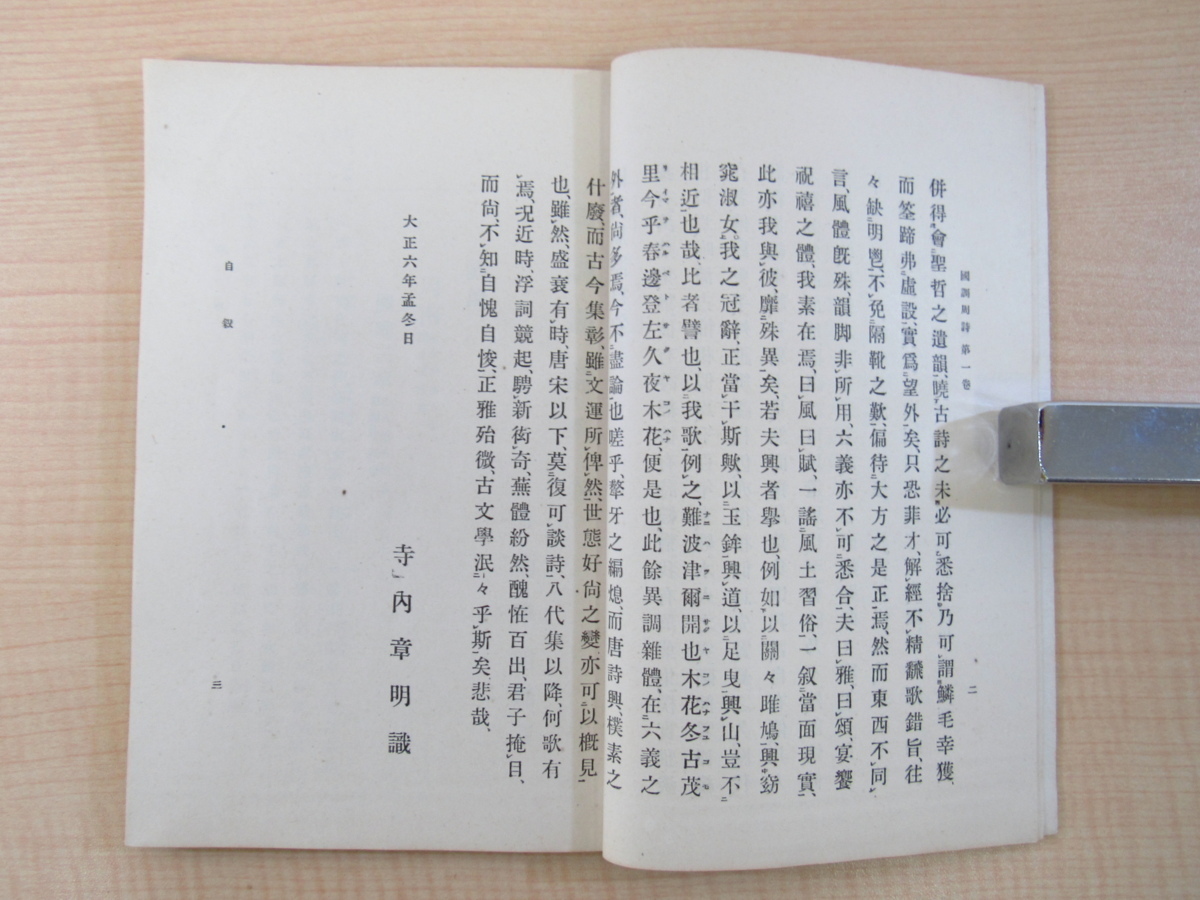 國訓周詩第一卷
二
併得會聖哲之遺韻、曉古詩之未必可悉捨、乃可謂鱗毛幸獲、
而筌蹄弗虛設、實爲望外矣、只恐非才、解經不精、飜歌錯旨、往
々缺明鬯、不免隔靴之歎、偏待大方之是正焉、然而東西不同
言、風體既殊韻脚非所用、六義亦不可悉合、夫曰雅、曰頌、宴饗
祝禧之體、我素在焉、曰風曰賦、一謠風土習俗、一叙當面現實、
此亦我與彼、靡殊異矣、若夫興者擧也、例如以關々雎鳩、興窈
窕淑女、我之冠辭、正當于斯歟、以玉鉾興道、以足曳興山、豈不
相近也哉、比者譬也、以我歌例之、難波津爾開也木花冬古茂
里今乎春邊登左久夜木花、便是也、此餘異調雜體、在六義之
外者、尚多焉、今不盡論也嗟乎、聱牙之編熄、而唐詩興、樸素之
什廢、而古今集彰、雖文運所俾然、世態好尚之變亦可以概見
也、雖然、盛衰有時、唐宋以下、莫復可談詩、八代集以降、何歌有
焉、況近時、浮詞競起、騁新衒奇、蕪體紛然、醜恠百出、君子掩目、
而尙、不知自愧自悛、正雅殆微、古文學泯々乎、斯矣悲哉、
大正六年孟冬日
寺内章明識
自敍
三